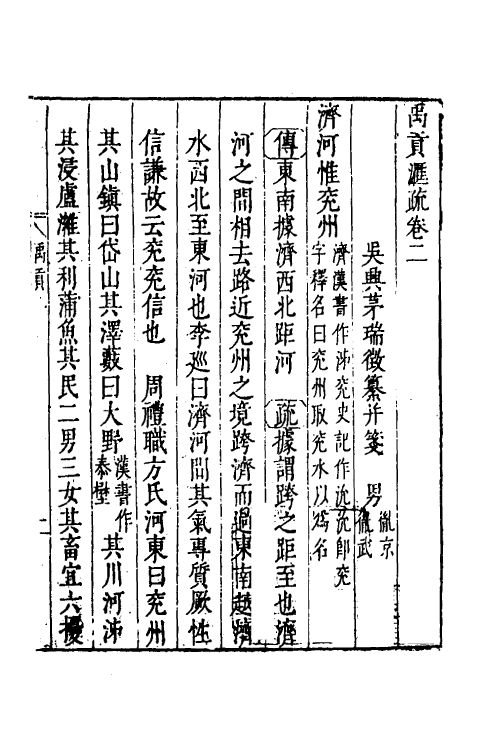 禹貢滙疏卷二
吳興茅瑞徵纂并箋 男 胤京 胤武
濟河惟兗州 濟漢書作泲兗史記作沇沇卽兗字釋名曰兗州取兗水以爲名
傳東南據濟西北距河 疏據謂跨之距至也濟
河之間相去路近兗州之境跨濟而過東南越濟
水西北至東河也李巡曰濟河間其氣專質厥性
信謙故云兗兗信也 周禮職方氏河東曰兗州
其山鎮曰岱山其澤藪曰大野 漢書作泰壄 其川河泲
其浸盧濰其利蒲魚其民二男三女其畜宜六擾
禹貢 二